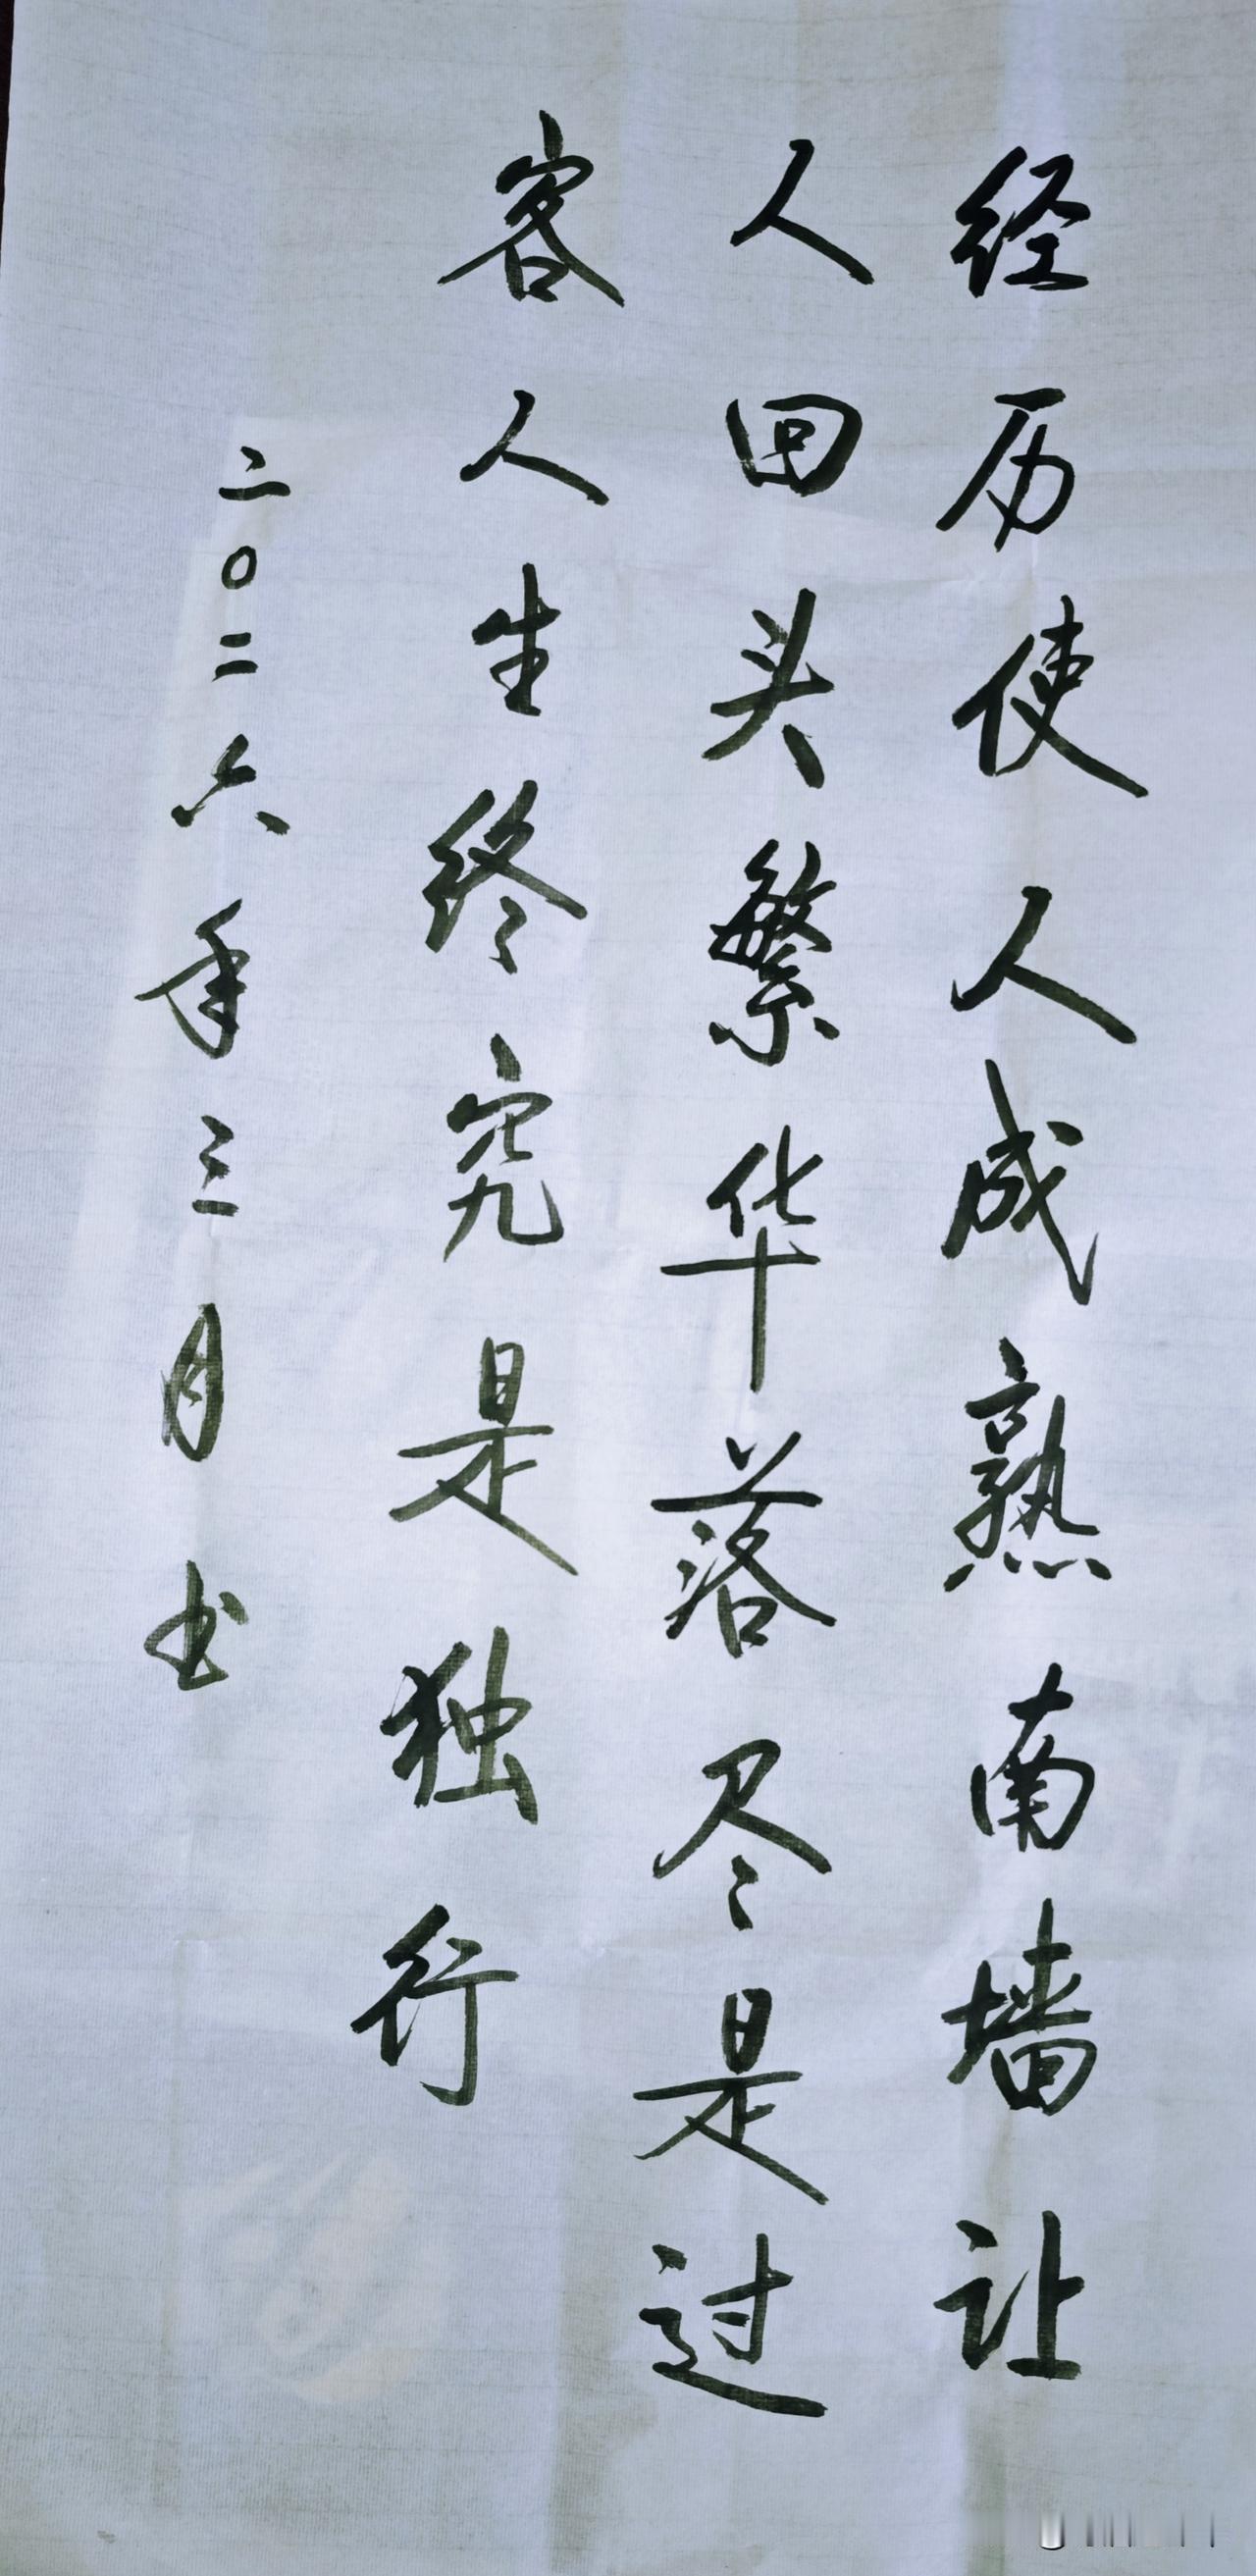 经历使人成熟南墙让
人回头繁华落尽是过
客人生终究是独行
二〇二六年三月书